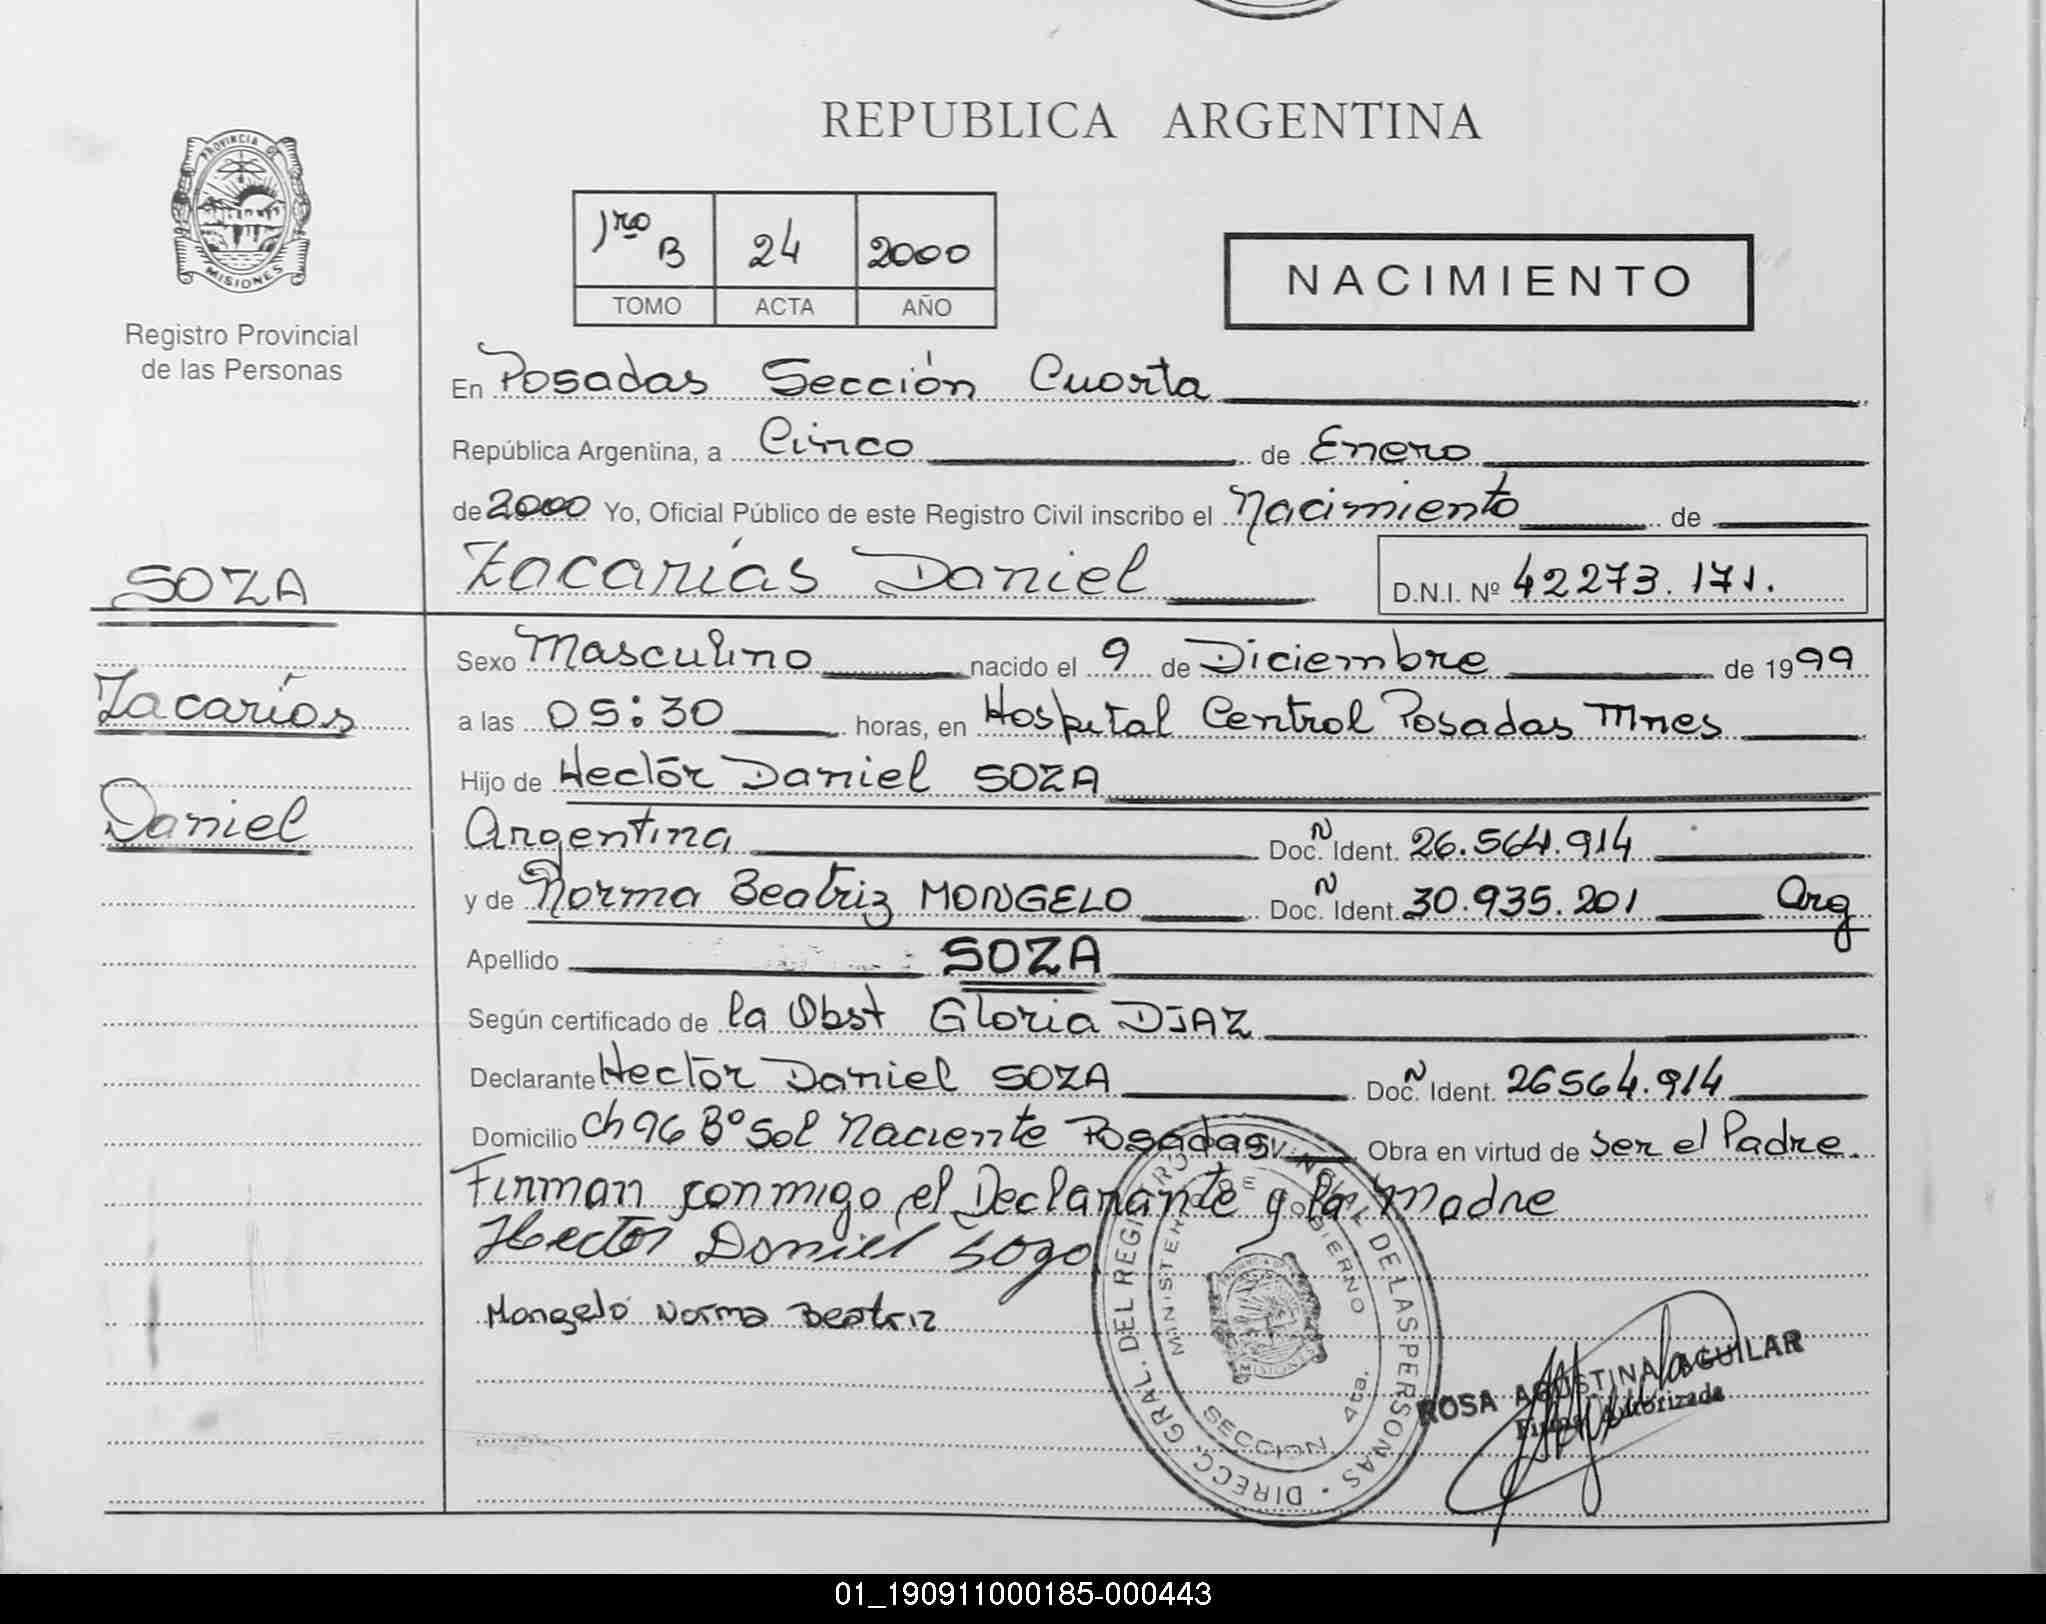 REPUBLICA ARGENTINA
PROVINCIA DE
MISIONES
Registro Provincial
de las Personas
1ro B 24 2000
TOMO ACTA AÑO
NACIMIENTO
En Posadas Sección Cuarta
República Argentina, a Cinco de Enero
de 2000 Yo, Oficial Público de este Registro Civil inscribo el Nacimiento de
Zacarías Daniel D.N.I. Nº 42273.171.
SOZA
Zacarías
Daniel
Sexo Masculino nacido el 9 de Diciembre de 1999
a las 05:30 horas, en Hospital Central Posadas Mnes
Hijo de Hectór Daniel SOZA
Argentina Doc. N Ident. 26.564.914
y de Norma Beatriz MONGELO Doc. N Ident. 30.935.201 Arg
Apellido SOZA
Según certificado de la Obst Gloria DIAZ
Declarante Hectór Daniel SOZA Doc. N Ident. 26564.914
Domicilio Ch 96 Bº Sol Naciente Posadas Obra en virtud de Ser el Padre.
Firman conmigo el Declarante y la Madre
Hector Daniel Sozo
Mongeló Norma Beatriz
DIRECC. GRAL. DEL REGISTRO PROVINCIAL DE LAS PERSONAS
MINISTERIO DE GOBIERNO
SECCION 4ta.
ROSA AGUSTINA AGUILAR
Firma Autorizada
01_190911000185-000443